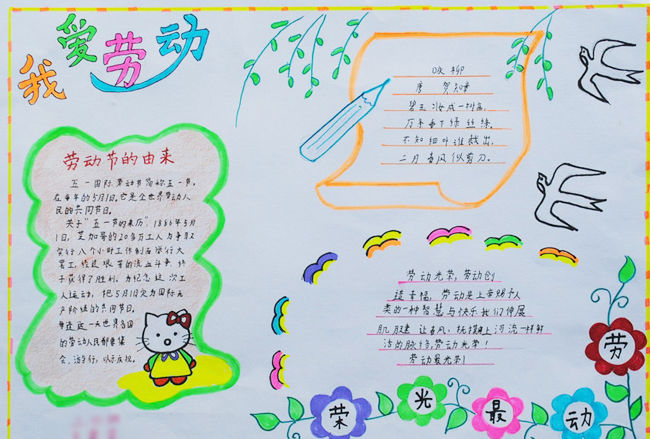 我爱劳动
劳动节的由来
五一国际劳动节简称五一节,
在每年的5月1日,它是全世界劳动人
民的共同节日。
关于"五一节的来历",1886年5月
1日,芝加哥的20多万工人为争取
实行八个小时工作制而举行大
罢工,经过艰苦的流血斗争,终
于获得了胜利。为纪念这次工
人运动,把5月1日定为国际无
产阶级的共同节日。
在这一天世界各国
的劳动人民都要集
会,游行,以示庆祝。
咏柳
唐 贺知章
碧玉妆成一树高,
万条垂下绿丝绦。
不知细叶谁裁出,
二月春风似剪刀。
劳让光荣,劳动创
造幸福,劳动是上帝赐予人
类的一种智慧,与快乐我们伸展
肌腱,让春风,抚摸上河流一样鲜
活的脉络,劳动光荣!
劳动最光荣!
劳
荣光最动